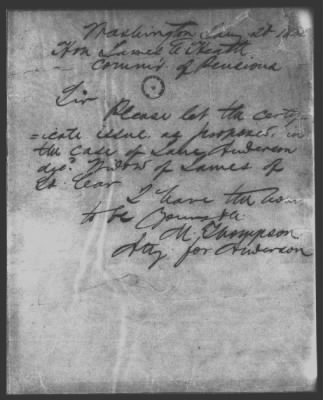 Washington Jany 28
Hon James E Heath
Commr. of Pensions
Sir
Please let the certif
=icate issue, as proposed, in
the case of Jane Anderson
decd. Widow of James of
I have the honr
to be
M. Thompson
Atty. for Anderson